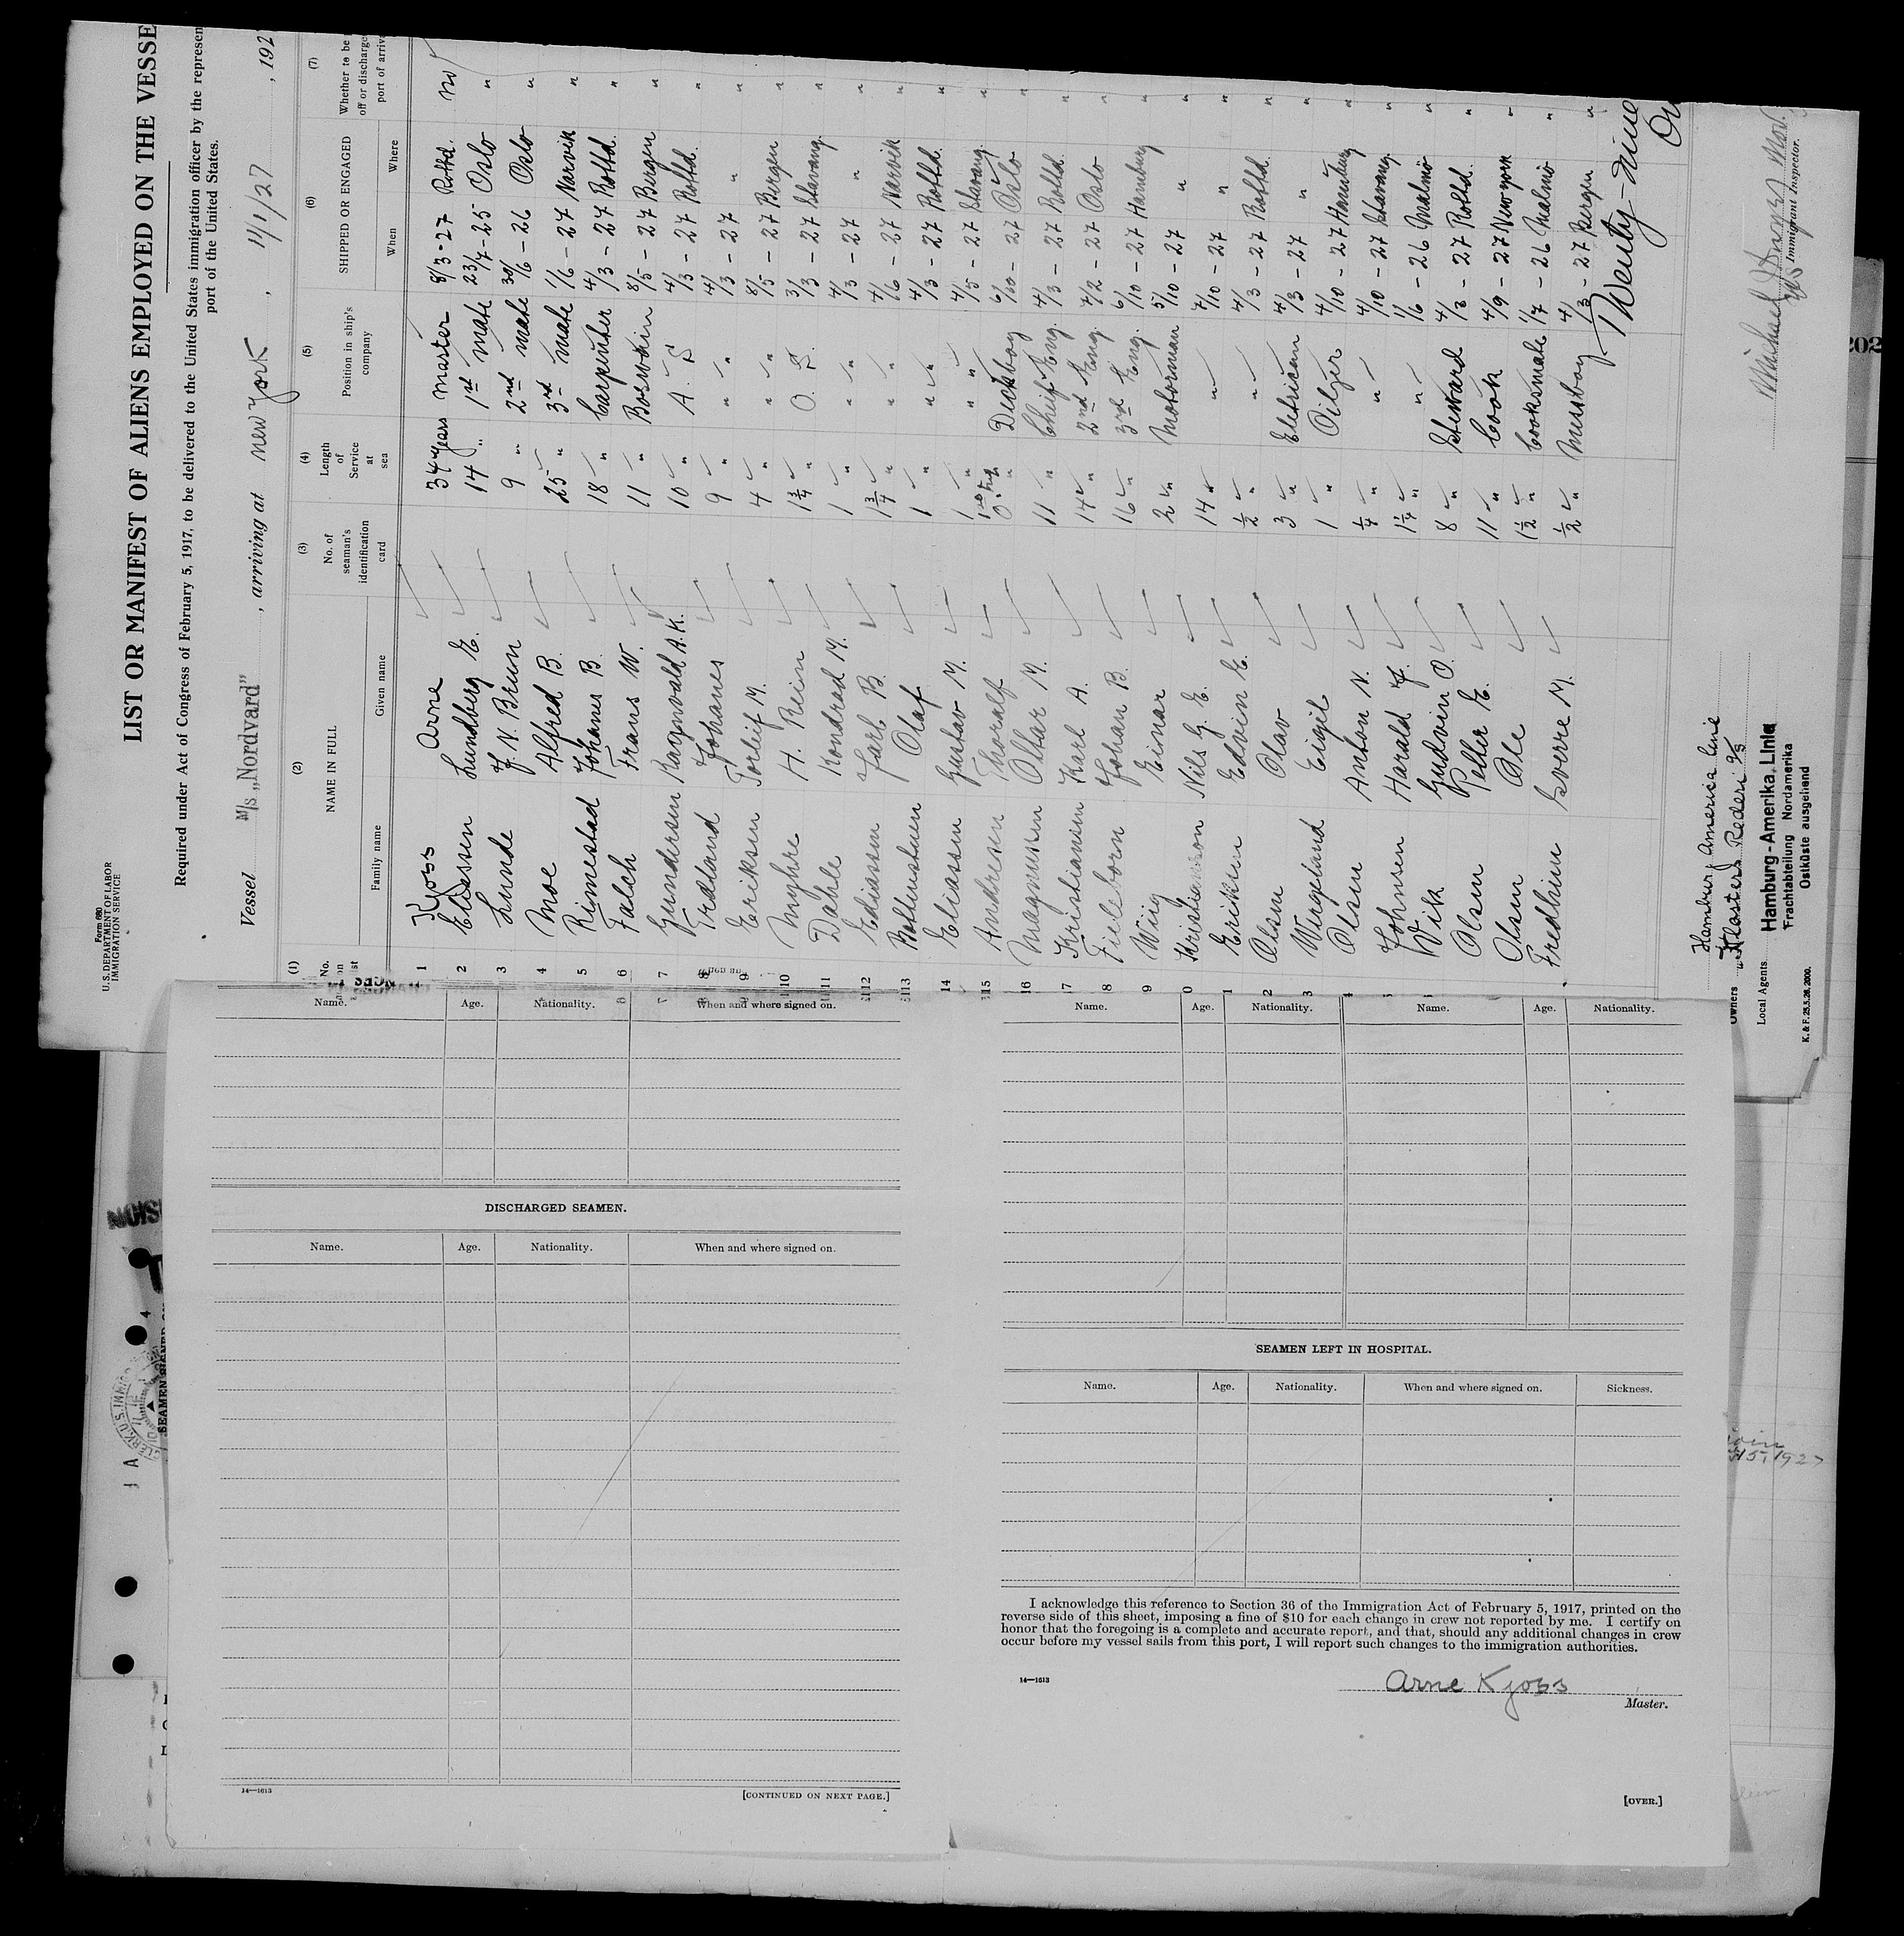 Form 680
U. S. DEPARTMENT OF LABOR
IMMIGRATION SERVICE
LIST OR MANIFEST OF ALIENS EMPLOYED ON THE VESSE
Required under Act of Congress of February 5, 1917, to be delivered to the United States immigration officer by the represen
port of the United States.
Vessel M/s „Nordvard" , arriving at new york , 11/1/27 , 192
(1) (2) (3) (4) (5) (6) (7)
No. on list NAME IN FULL No. of seaman's identification card Length of Service at sea Position in ship's company SHIPPED OR ENGAGED Whether to be off or discharge port of arriva
Family name Given name When Where
1 Kjoss Arne 34 years master 8/3-27 Rottd. no
2 Eliessen Lundberg E. 14 " 1st mate 23/7-25 Oslo "
3 Lunde J. N. Brun 9 " 2nd mate 30/6-26 Oslo "
4 Moe Alfred B. 25 " 3rd mate 1/6-27 Narvik "
5 Rimestad Johanes B. 18 " Carpenter 4/3-27 Rottd. "
6 Falch Frans W. 11 " Boswain 8/5-27 Bergen "
7 Gundersen Ragnvald A.K. 10 " A. S. 4/3-27 Rottd. "
8 Tredland Johanes 9 " " 4/3-27 " "
9 Eriksen Torleif M. 4 " " 8/5-27 Bergen "
10 Myhre H. Rein 1 3/4 " O. S. 3/3-27 Stavang. "
11 Dahle Kondrad M. 1 " " 4/3-27 " "
12 Eliassen Jarl B. 1 3/4 " " 4/6-27 Narvik "
13 Olaf 1 " " 4/3-27 Rottd. "
14 Eliassen Gustav M. 1 " " 4/5-27 Stavang. "
15 Andresen Thoralf Decksboy 6/10-27 Oslo "
16 Magnussen Ottar M. 11 " Cheif Eng. 4/3-27 Rottd. "
7 Kristiansen Karl A. 14 " 2nd Eng. 7/2-27 Oslo "
8 Fieleborn Johan B. 16 " 3rd Eng. 6/10-27 Hamburg "
9 Wiig Einar 2 " Motorman 5/10-27 " "
0 Kristianson Nils G. E. 14 " " 7/10-27 " "
1 Eriksen Edvin E. 1/2 " " 4/3-27 Rottd. "
2 Olsen Olav 3 " Eletrican 4/3-27 " "
3 Wergeland Eigil 1 " Oilger 4/10-27 Hamburg "
4 Olsen Anton N. 1/4 " " 4/10-27 Stavang. "
5 Johnsen Harald J. 1 1/4 " " 1/6-26 Malmö "
Wik Gudvin O. 8 " Steward 4/3-27 Rottd. "
Olsen Petter E. 11 " Cook 4/9-27 New york "
Olsen Ole 1 1/2 " Cooksmate 1/7-26 Malmö "
Fredheim Sverre M. 1/2 " Messboy 4/3-27 Bergen "
Twenty-nine
Immigrant Inspector.
Hamburg America Linie
Owners Klosters Rederi A/S
Local Agents Hamburg-Amerika Linie
Frachtabteilung Nordamerika
Ostküste ausgehend
K. & F. 25.5.26. 2000.
202
Name. Age. Nationality. When and where signed on.
DISCHARGED SEAMEN.
Name. Age. Nationality. When and where signed on.
14—1613
[CONTINUED ON NEXT PAGE.]
Name. Age. Nationality. Name. Age. Nationality.
SEAMEN LEFT IN HOSPITAL.
Name. Age. Nationality. When and where signed on. Sickness.
I acknowledge this reference to Section 36 of the Immigration Act of February 5, 1917, printed on the
reverse side of this sheet, imposing a fine of $10 for each change in crew not reported by me. I certify on
honor that the foregoing is a complete and accurate report, and that, should any additional changes in crew
occur before my vessel sails from this port, I will report such changes to the immigration authorities.
14—1613
Arne Kjoss
Master.
[OVER.]